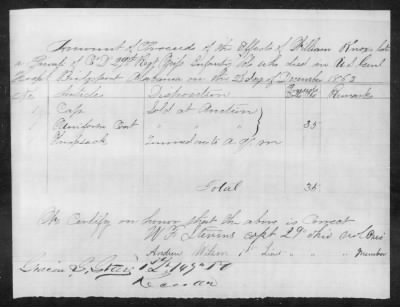 Amount of Proceeds of the Effects of William Knox late
a Private of Co D 29th Regt Infantry Vols who died in U.S. Genl
Hospl Bridgeport Alabama on the day of December 1863
No. Articles Disposition Remarks
1 Cap Sold at Auction
1 Uniform Coat " " " 35
1 Knapsack Turned into A.Q.M.
Total 35
We Certify on honor that the above is Correct
W F Stevens Capt 29 Ohio Vol Pres
Andrew Wilson Lieut " " " Member